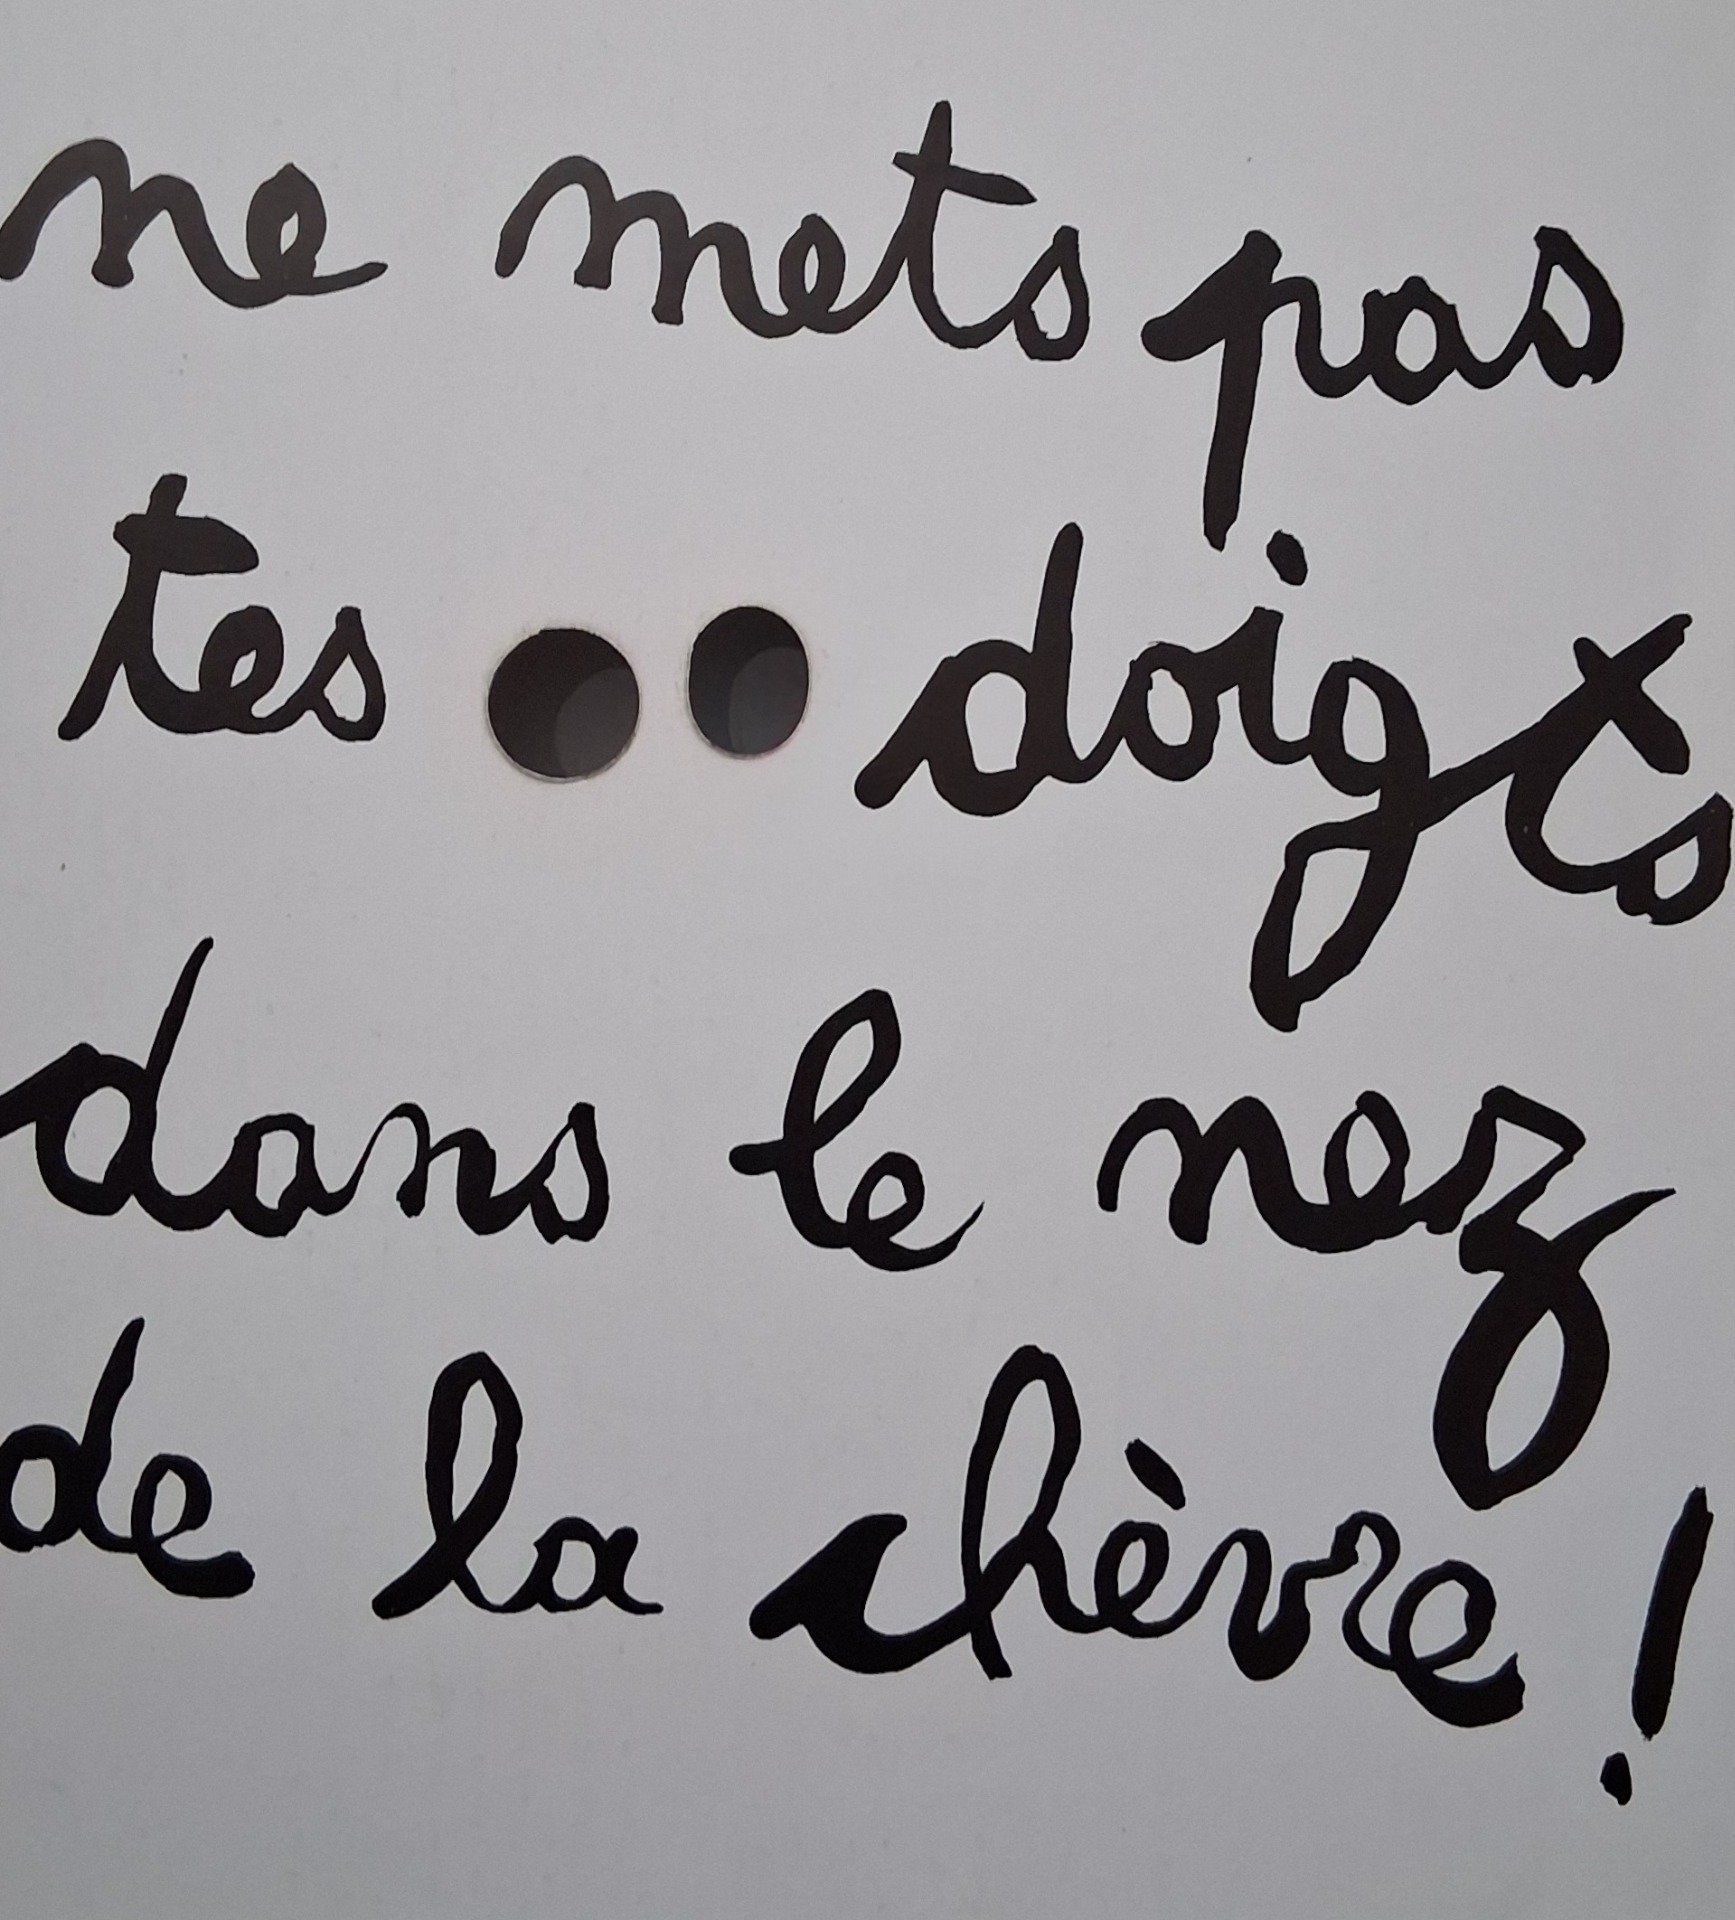 ne mets pas
tes doigts
dans le nez
de la chèvre !